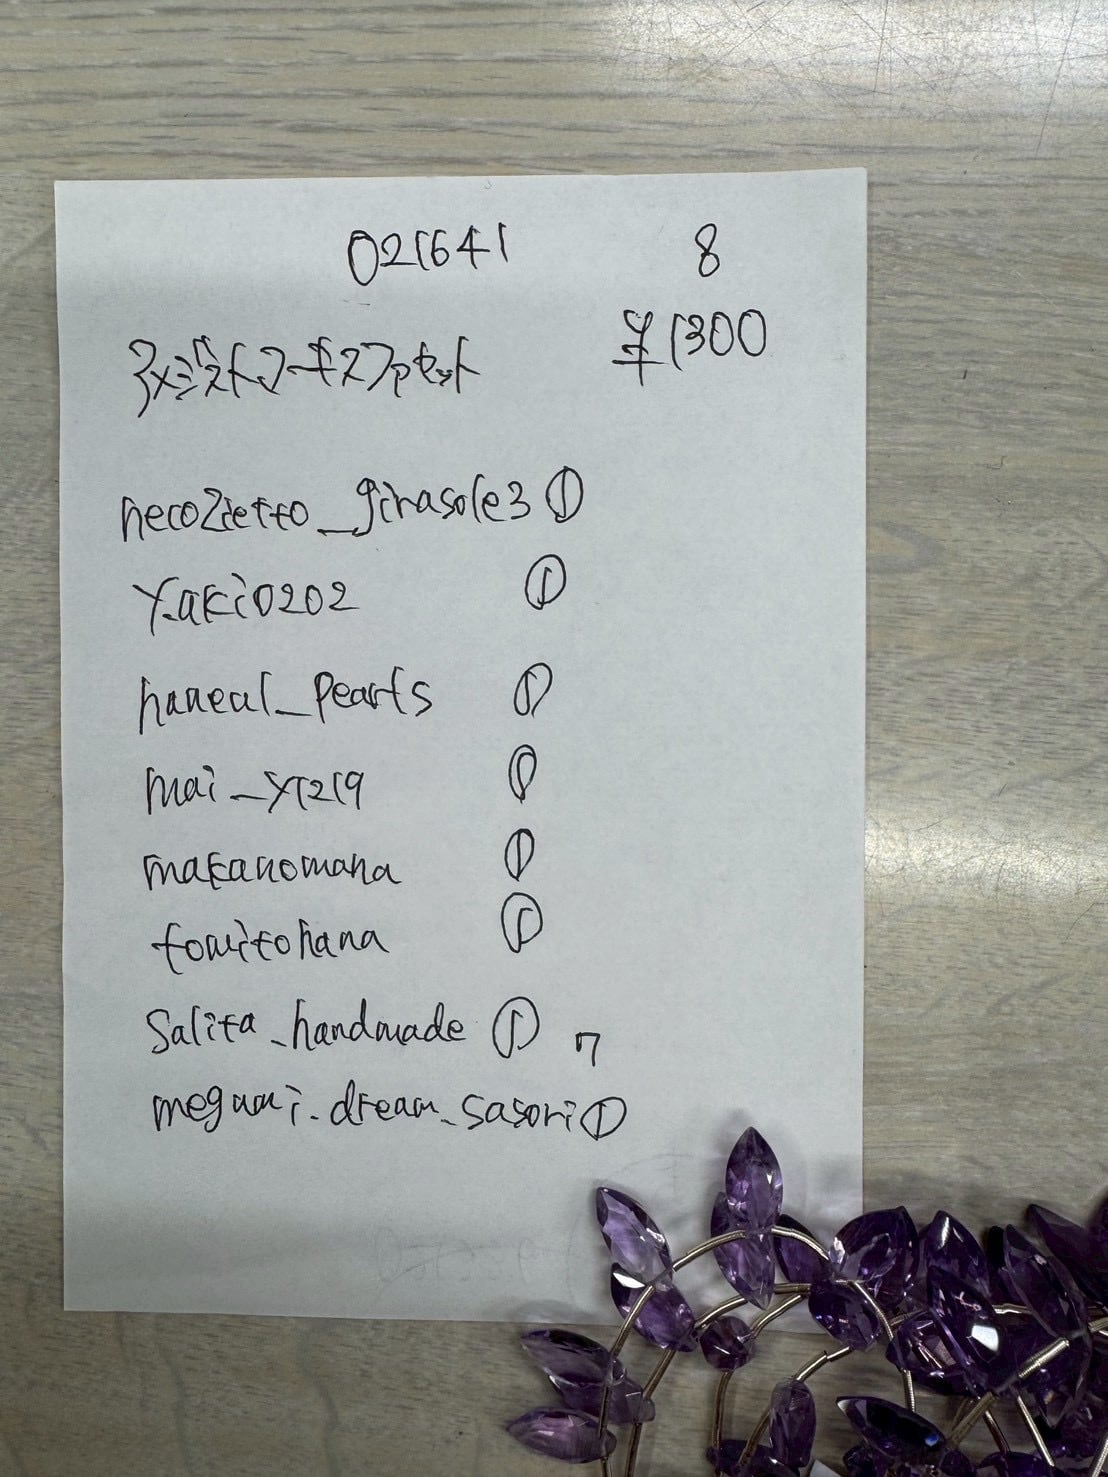 021641 8
¥1300
necozietto_girasole3 ①
y.aki0202 ①
haneul_pearls ①
mai_y1219 ①
makanomana ①
tomitohana ①
salita_handmade ① 7
megumi.dream_sasori ①